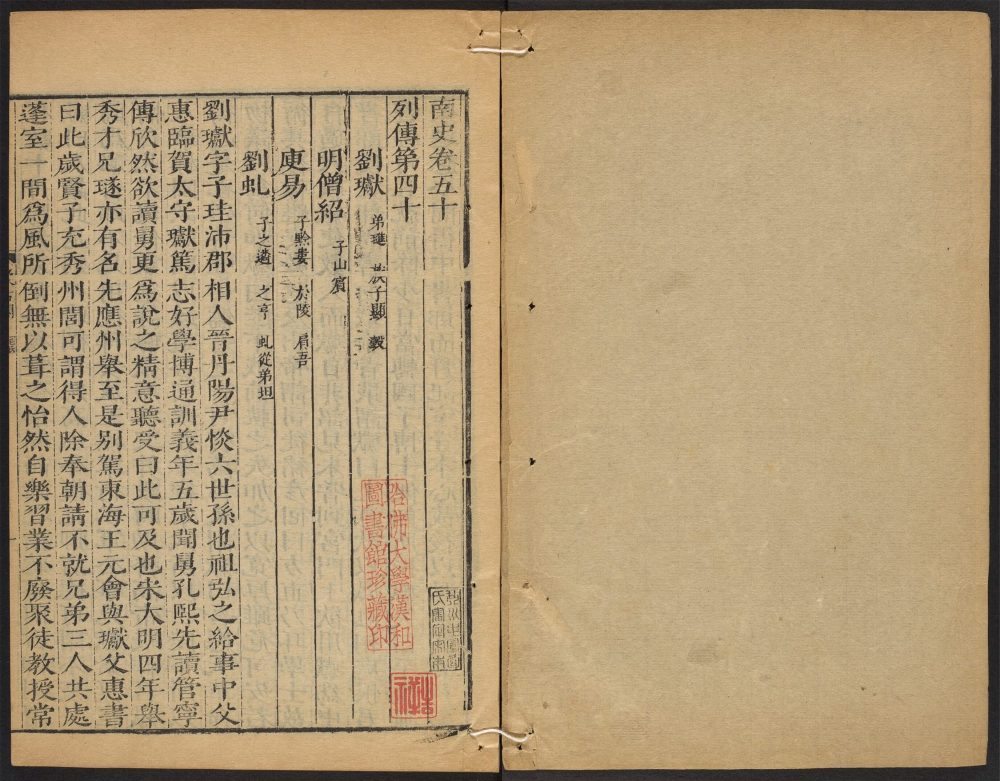 南史卷五十
列傳第四十
劉瓛 弟璡 族子顯 瑴
明僧紹 子山賓
庾易 子黔婁 於陵 肩吾
劉虬 子之遴 之亨 虬從弟坦
劉瓛字子珪沛郡相人晉丹陽尹惔六世孫也祖弘之給事中父
惠臨賀太守瓛篤志好學博通訓義年五歲聞舅孔熙先讀管寧
傳欣然欲讀舅更爲說之精意聽受曰此可及也宋大明四年舉
秀才兄璲亦有名先應州舉至是别駕東海王元會與瓛父惠書
曰此歲賢子充秀州閭可謂得人除奉朝請不就兄弟三人共處
蓬室一間爲風所倒無以葺之怡然自樂習業不廢聚徒教授常
哈佛大學漢和
圖書館珍藏印